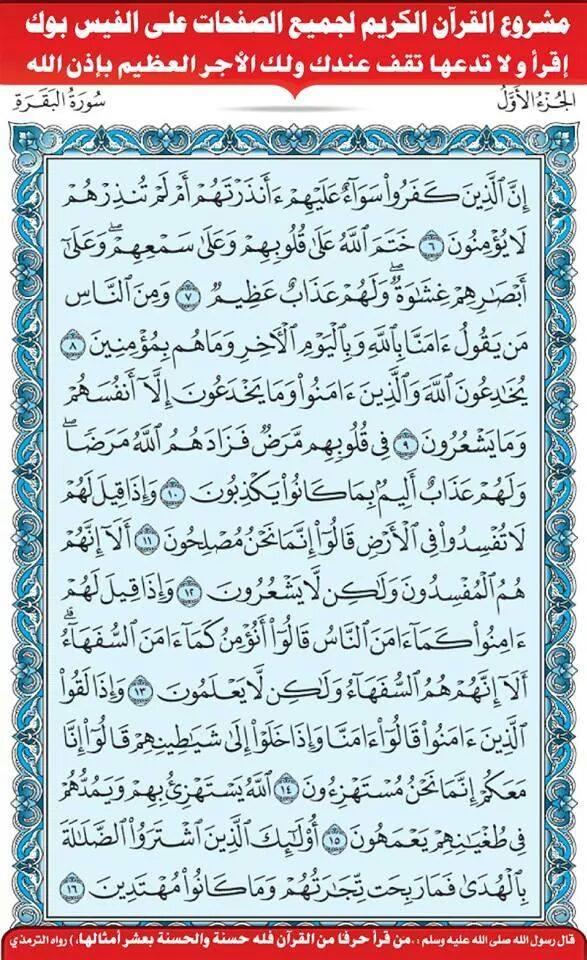 مشروع القرآن الكريم لجميع الصفحات على الفيس بوك
إقرأ و لا تدعها تقف عندك ولك الأجر العظيم بإذن الله
الجُزْءُ الأَوَّلُ سُورَةُ البَقَرَةِ
إِنَّ ٱلَّذِينَ كَفَرُوا۟ سَوَآءٌ عَلَيْهِمْ ءَأَنذَرْتَهُمْ أَمْ لَمْ تُنذِرْهُمْ
لَا يُؤْمِنُونَ ٦ خَتَمَ ٱللَّهُ عَلَىٰ قُلُوبِهِمْ وَعَلَىٰ سَمْعِهِمْ ۖ وَعَلَىٰٓ
أَبْصَٰرِهِمْ غِشَٰوَةٌ ۖ وَلَهُمْ عَذَابٌ عَظِيمٌ ٧ وَمِنَ ٱلنَّاسِ
مَن يَقُولُ ءَامَنَّا بِٱللَّهِ وَبِٱلْيَوْمِ ٱلْءَاخِرِ وَمَا هُم بِمُؤْمِنِينَ ٨
يُخَٰدِعُونَ ٱللَّهَ وَٱلَّذِينَ ءَامَنُوا۟ وَمَا يَخْدَعُونَ إِلَّآ أَنفُسَهُمْ
وَمَا يَشْعُرُونَ ٩ فِى قُلُوبِهِم مَّرَضٌ فَزَادَهُمُ ٱللَّهُ مَرَضًا ۖ
وَلَهُمْ عَذَابٌ أَلِيمٌۢ بِمَا كَانُوا۟ يَكْذِبُونَ ١٠ وَإِذَا قِيلَ لَهُمْ
لَا تُفْسِدُوا۟ فِى ٱلْأَرْضِ قَالُوٓا۟ إِنَّمَا نَحْنُ مُصْلِحُونَ ١١ أَلَآ إِنَّهُمْ
هُمُ ٱلْمُفْسِدُونَ وَلَٰكِن لَّا يَشْعُرُونَ ١٢ وَإِذَا قِيلَ لَهُمْ
ءَامِنُوا۟ كَمَآ ءَامَنَ ٱلنَّاسُ قَالُوٓا۟ أَنُؤْمِنُ كَمَآ ءَامَنَ ٱلسُّفَهَآءُ ۗ
أَلَآ إِنَّهُمْ هُمُ ٱلسُّفَهَآءُ وَلَٰكِن لَّا يَعْلَمُونَ ١٣ وَإِذَا لَقُوا۟
ٱلَّذِينَ ءَامَنُوا۟ قَالُوٓا۟ ءَامَنَّا وَإِذَا خَلَوْا۟ إِلَىٰ شَيَٰطِينِهِمْ قَالُوٓا۟ إِنَّا
مَعَكُمْ إِنَّمَا نَحْنُ مُسْتَهْزِءُونَ ١٤ ٱللَّهُ يَسْتَهْزِئُ بِهِمْ وَيَمُدُّهُمْ
فِى طُغْيَٰنِهِمْ يَعْمَهُونَ ١٥ أُو۟لَٰٓئِكَ ٱلَّذِينَ ٱشْتَرَوُا۟ ٱلضَّلَٰلَةَ
بِٱلْهُدَىٰ فَمَا رَبِحَت تِّجَٰرَتُهُمْ وَمَا كَانُوا۟ مُهْتَدِينَ ١٦
قال رسول الله صلى الله عليه وسلم : ,,من قرأ حرفا من القرآن فله حسنة والحسنة بعشر أمثالها,, ) رواه الترمذي